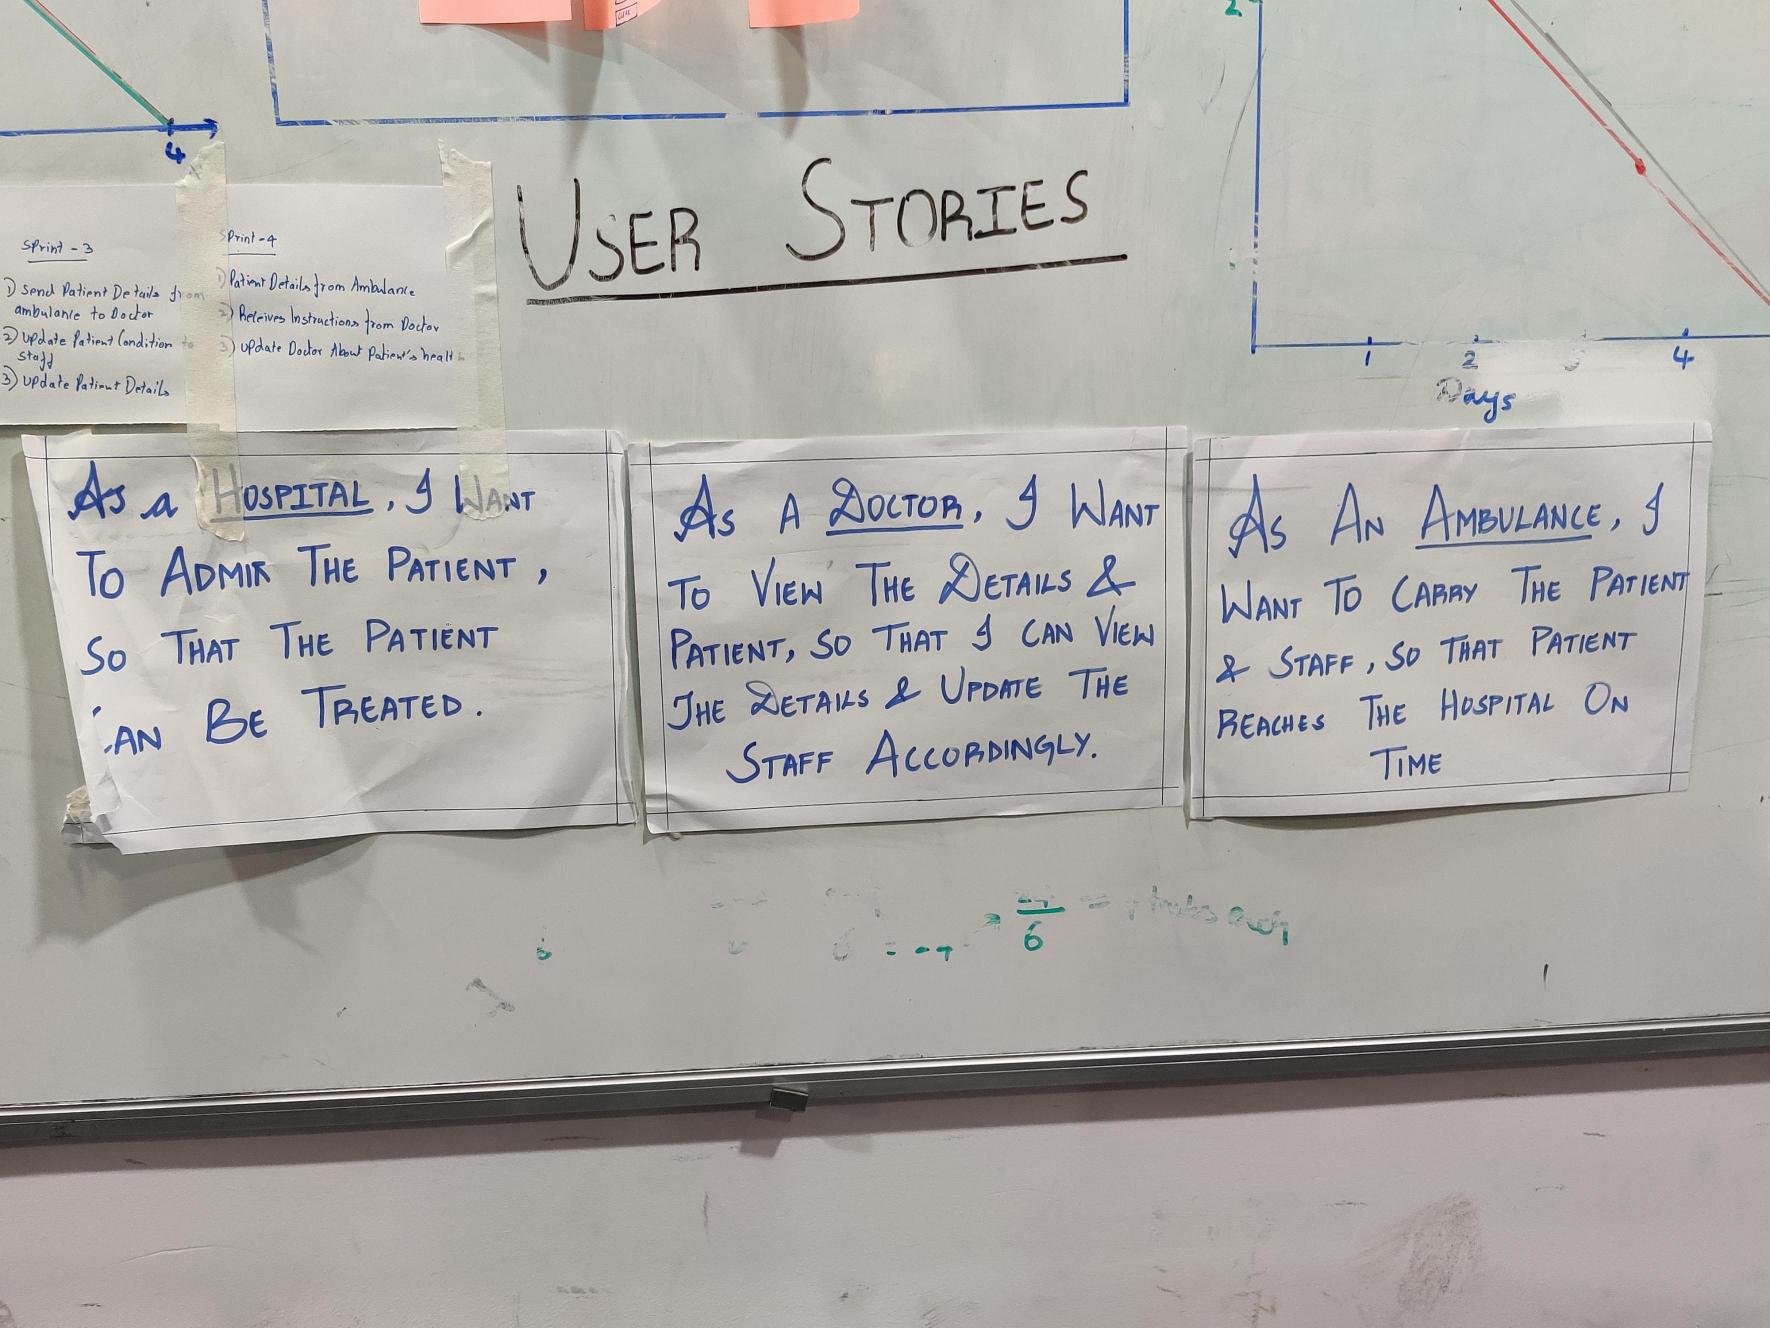 4
USER STORIES
Sprint - 3
1) Send Patient Details from
ambulance to Doctor
2) Update Patient Condition to
Staff
3) Update Patient Details
Sprint - 4
1) Patient Details from Ambulance
2) Receives Instructions from Doctor
3) Update Doctor About Patient's healt
2
1 2 4
Days
AS a HOSPITAL, I WANT
TO ADMIT THE PATIENT,
SO THAT THE PATIENT
CAN BE TREATED.
AS A DOCTOR, I WANT
TO VIEW THE DETAILS &
PATIENT, SO THAT I CAN VIEW
THE DETAILS & UPDATE THE
STAFF ACCORDINGLY.
AS AN AMBULANCE, I
WANT TO CARRY THE PATIENT
& STAFF, SO THAT PATIENT
REACHES THE HOSPITAL ON
TIME
6